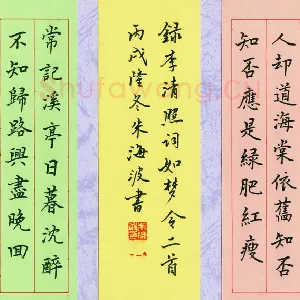 人却道海棠依舊知否
知否應是綠肥紅瘦
録李清照詞如梦令二首
丙戌隆冬朱海波書
常記溪亭日暮沈醉
不知歸路興盡晚回